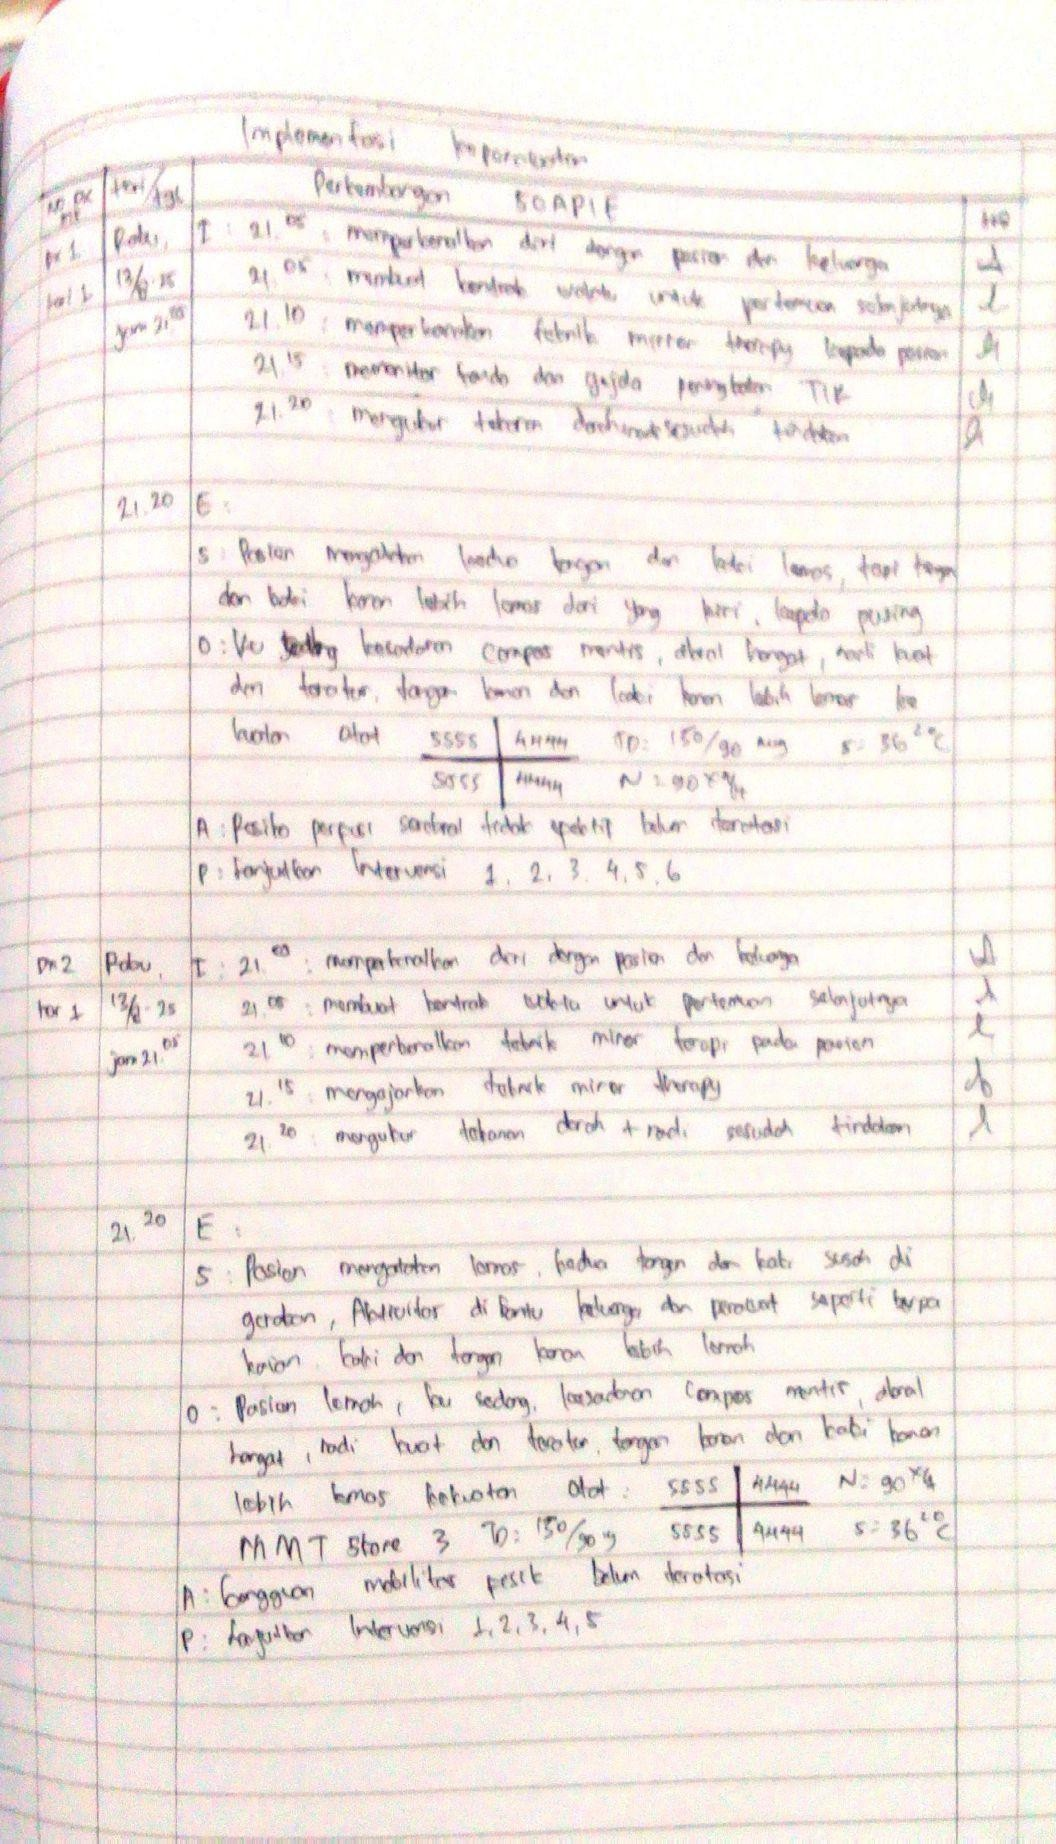 Implementasi keperawatan
No DX hari/tgl Perkembangan SOAPIE
Dx 1 Rabu, I : 21.05 : memperkenalkan diri dengan pasien dan keluarga
hari 1 21.05 : membuat kontrak waktu untuk pertemuan selanjutnya
jam 21.05 21.10 : memperkenalkan teknik mirror therapy kepada pasien
21.15 : memonitor tanda dan gejala peningkatan TIK
21.20 : mengukur tekanan darah sesudah tindakan
21.20 E :
S : Pasien mengatakan kedua tangan dan kaki lemas, tapi tangan
dan kaki kanan lebih lemas dari yang kiri, kepala pusing
O : Ku sedang kesadaran compos mentis, akral hangat, nadi kuat
dan teratur, tangan kanan dan kaki kanan lebih lemas ke
kuatan otot 5555 4444 TD: 150/90 S: 36 °C
5555 4444 N : 90 x/
A : Resiko perfusi serebral tidak epektif belum teratasi
P : Lanjutkan Intervensi 1, 2, 3, 4, 5, 6
Dx 2 Rabu, I : 21.00 : memperkenalkan diri dengan pasien dan keluarga
har 1 21.05 : membuat kontrak waktu untuk pertemuan selanjutnya
jam 21.05 21.10 : memperkenalkan teknik mirror terapi pada pasien
21.15 : mengajarkan teknik mirror therapy
21.20 : mengukur tekanan darah + nadi sesudah tindakan
21.20 E :
S : Pasien mengatakan lemas, kedua tangan dan kaki susah di
gerakan, Aktivitas di bantu keluarga dan perawat seperti berpa
kaian, kaki dan tangan kanan lebih lemah
O : Pasien lemah, ku sedang, kesadaran compos mentis, akral
hangat, nadi kuat dan teratur, tangan kanan dan kaki kanan
lebih lemas kekuatan otot : 5555 4444 N : 90 x/
MMT Skore 3 TD : 150/90 5555 4444 S : 36 °C
A : Gangguan mobilitas pesik belum teratasi
P : Lanjutkan Intervensi 1, 2, 3, 4, 5